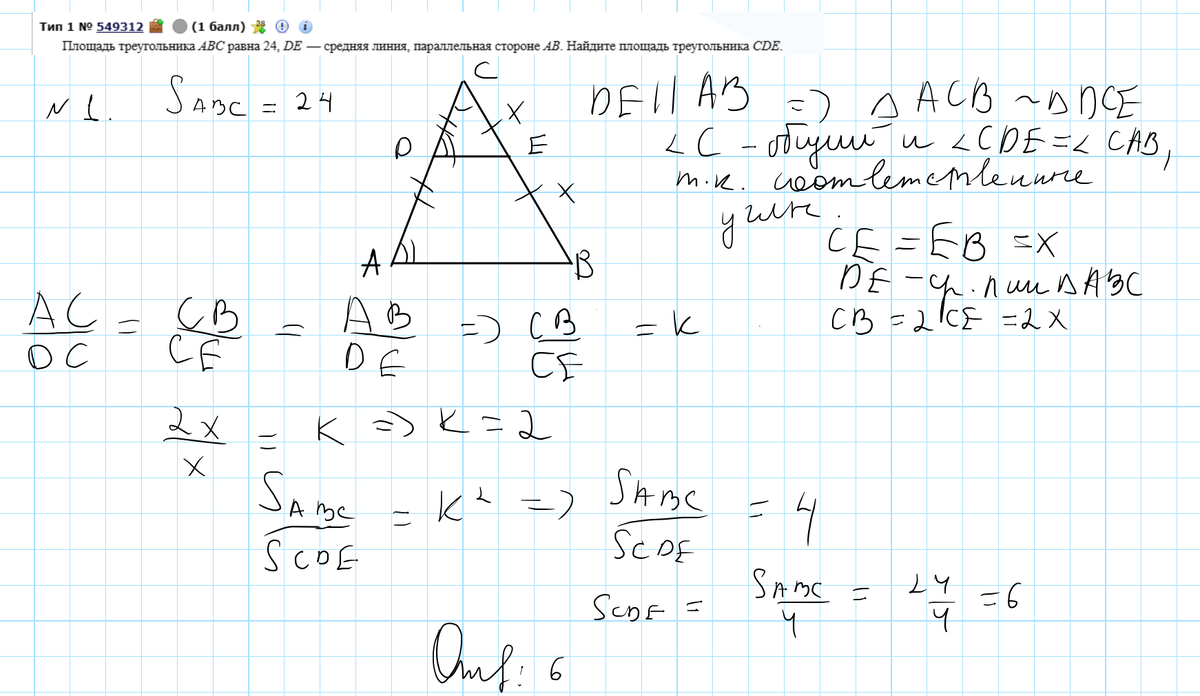 Тип 1 № 549312 (1 балл)
Площадь треугольника ABC равна 24, DE — средняя линия, параллельная стороне AB. Найдите площадь треугольника CDE.
N 1. S ABC = 24
C
D
E
x
x
A
B
DE || AB => Δ ACB ~ Δ DCE
∠C - общий и ∠CDE = ∠CAB,
т.к. соответственные
углы.
CE = EB = x
DE - ср. лин Δ ABC
CB = 2CE = 2x
AC/DC = CB/CE = AB/DE => CB/CE = k
2x/x = k => k = 2
S ABC/S CDE = k² => S ABC/S CDE = 4
S CDE = S ABC/4 = 24/4 = 6
Отв: 6